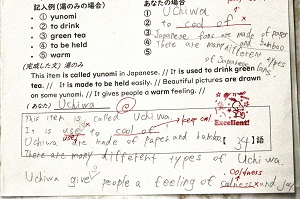 記入例(湯のみの場合)
① yunomi
② to drink
③ green tea
④ to be held
⑤ warm
あなたの場合
① Uchiwa
② to cool of
③ Japanese fans are made of paper and bamboo
④ There are many different types of Japanese fans
⑤
(完成した文) 湯のみ
This item is called yunomi in Japanese. // It is used to drink green
tea. // It is made to be held easily. // Beautiful pictures are drawn
on some yunomi. // It gives people a warm feeling. //
(あなた) Uchiwa
This item is called Uchiwa
It is use to cool of keep cool
used
Uchiwa are made of paper and bamboo
Excellent!
34語
There are many different types of Uchiwa.
coolness
Uchiwa give people a feeling of calness and joy